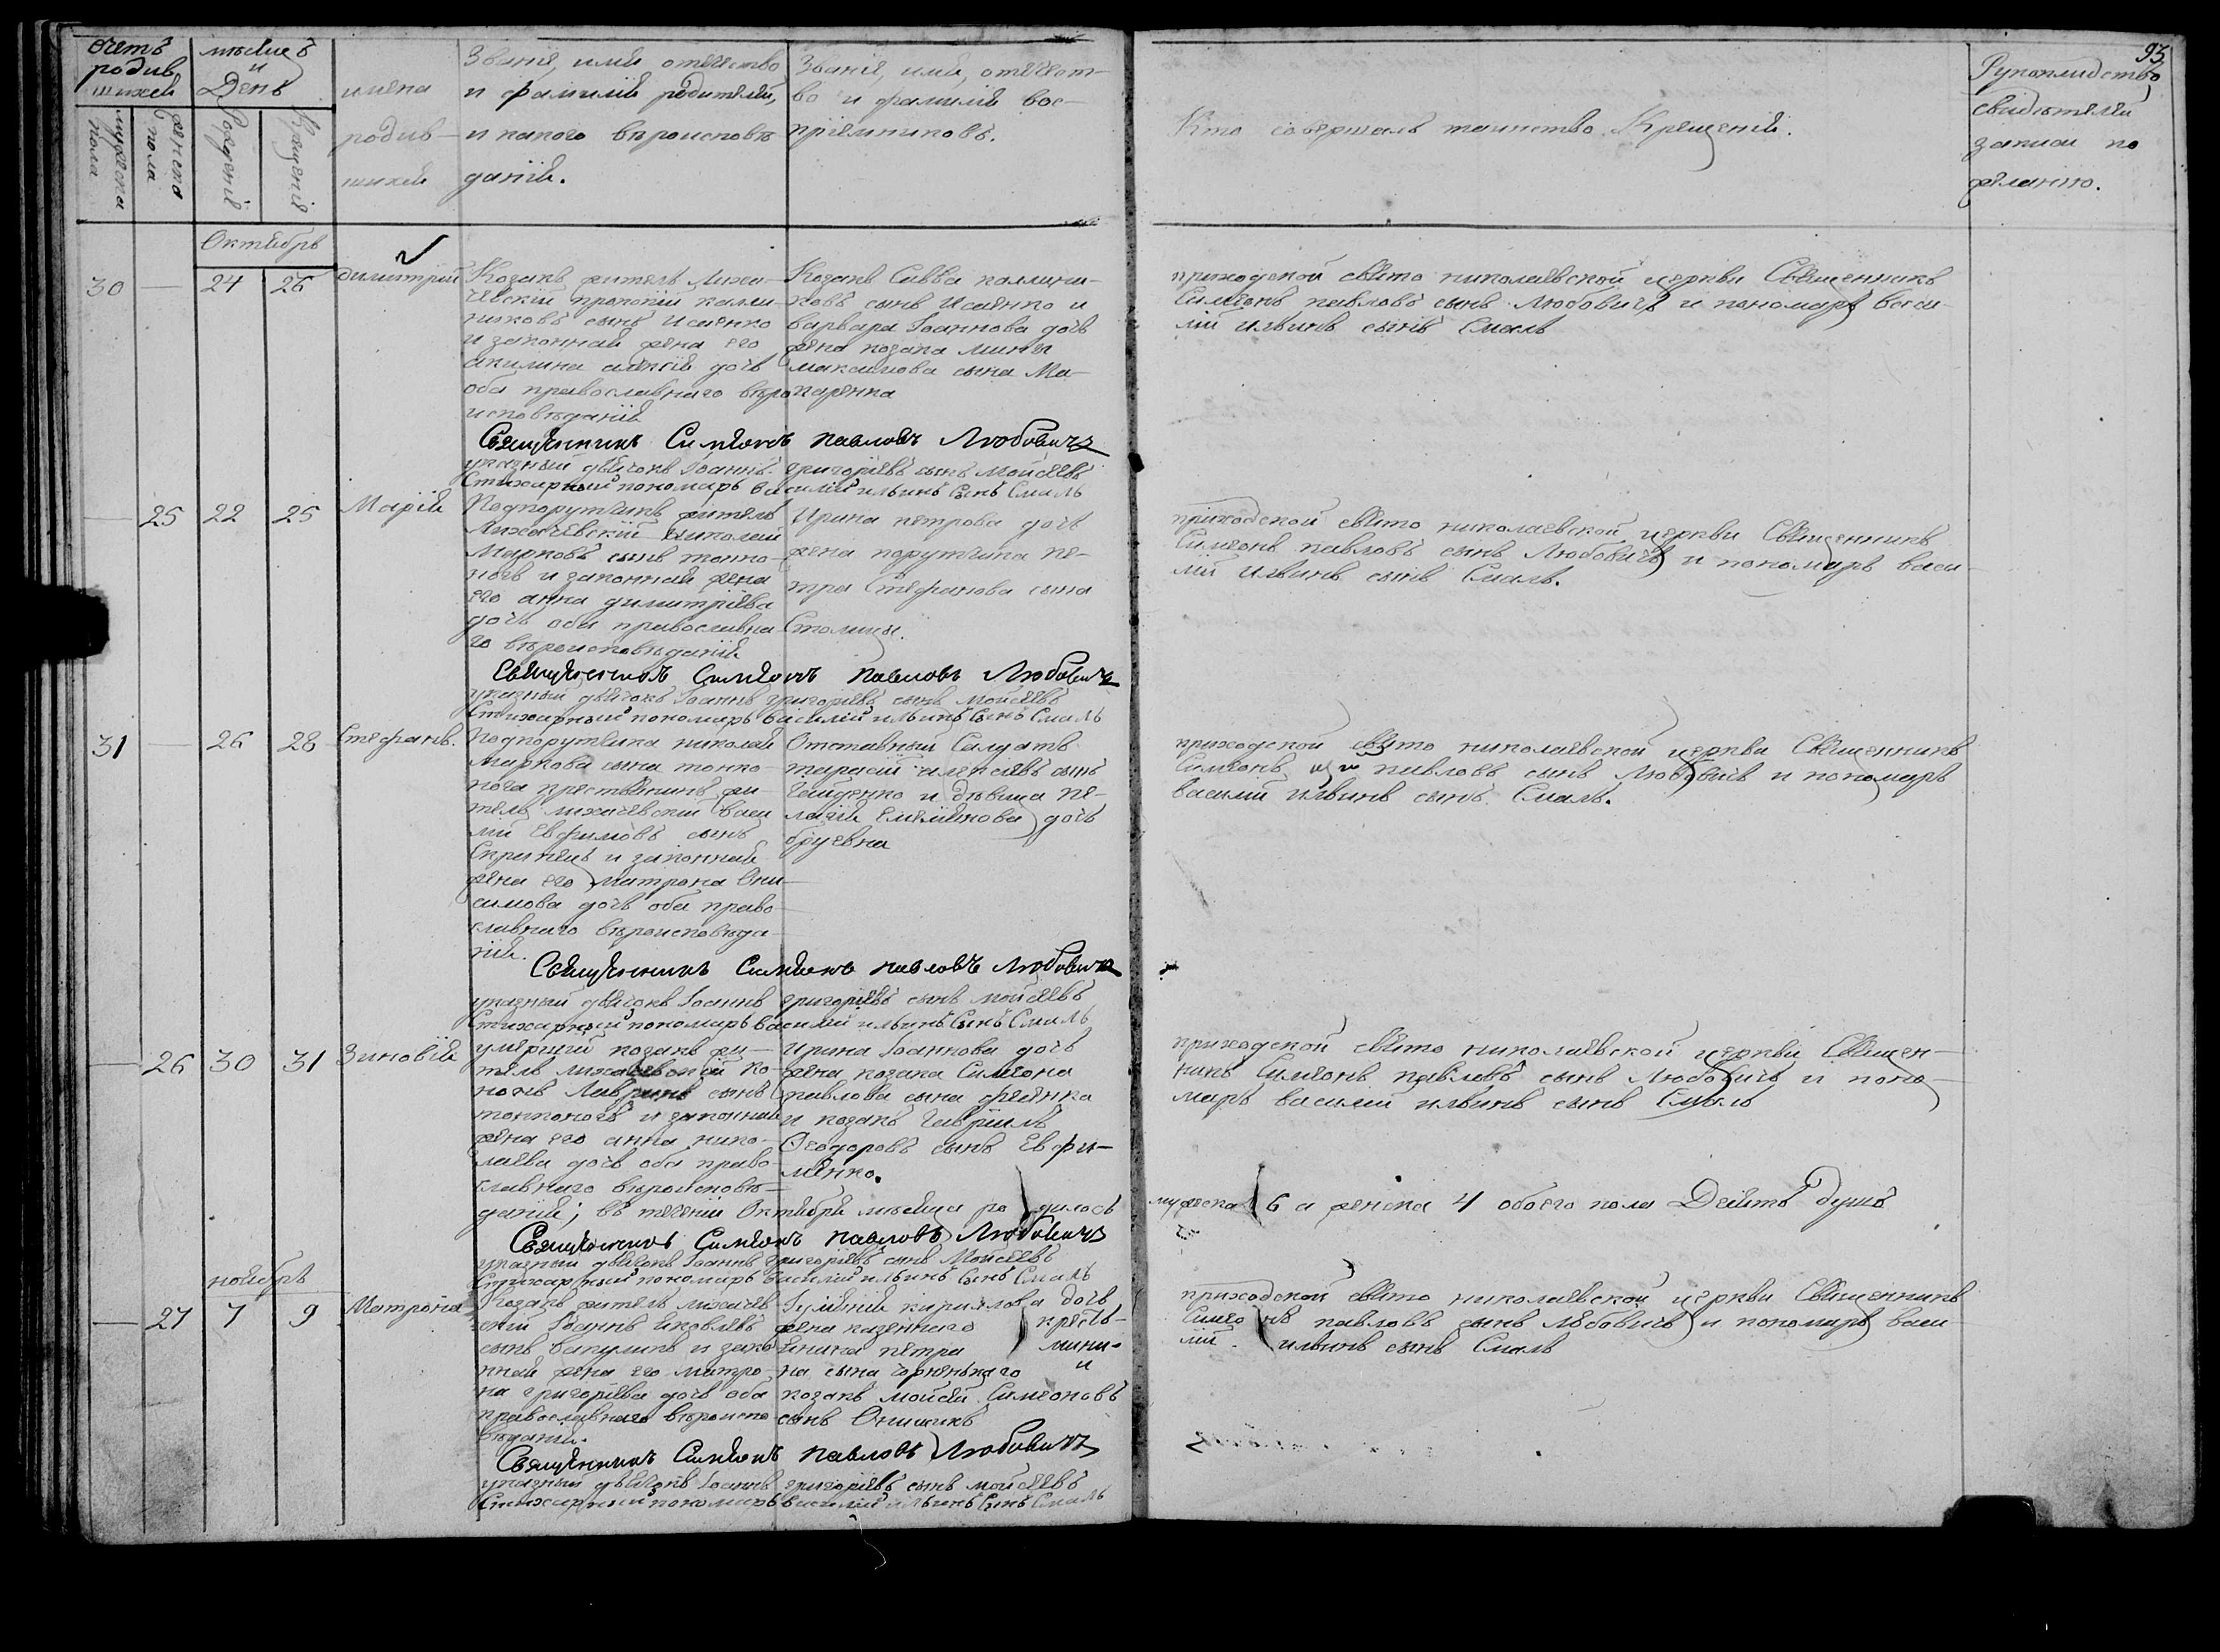 93
Счетъ родив шихся
мѣсяцъ и День
имена родив- шихся
Званіе, имя отечество и фамилія родителей, и какого вѣроисповѣ даніія.
Званіе, имя, отечест- во и фамилія вос- пріемниковъ.
Кто совершалъ таинство Крещенія.
Рукоприкладство свидѣтелей записи по желанію.
мужеска пола
женска пола
Рожденія
Крещенія
Октябрь
30 — 24 26 Димитрій
Козакъ житель Лиха-
чевскій прокопій калли-
никовъ сынъ Исаенко
и законная жена его
акилина алексія дочь
оба православнаго вѣро
исповѣданія
Козакъ Савва каллини-
ковъ сынъ Исаенко и
варвара Іоаннова дочь
жена козака мины
максимова сына Ма-
каренка
приходской свято николаевской церкви Священникъ
Симеонъ павловъ сынъ Любовичъ и пономарь васи-
лій ильинъ сынъ Смаль
Священникъ Симеонъ павловъ Любовичъ
указный дьячокъ Іоаннъ григоріевъ сынъ Мойсеевъ
Стихарный пономарь василій ильинъ Сынъ Смаль
— 25 22 25 Марія
Подпоручикъ житель
Лихачевскій николай
Марковъ сынъ тонко-
ногъ и законная жена
его анна димитріева
дочь оба православна-
го вѣроисповѣданія
Ирина петрова дочь
жена поручика пе-
тра Стефанова сына
Столицы.
приходской свято николаевской церкви Священникъ
Симеонъ павловъ сынъ Любовичъ и пономарь васи-
лій ильинъ сынъ Смаль.
Священникъ Симеонъ павловъ Любовичъ
указный дьячокъ Іоаннъ григоріевъ сынъ Мойсеевъ
Стихарный пономарь василій ильинъ Сынъ Смаль
31 — 26 28 Стефанъ.
Подпоручика николая
Маркова сына тонко-
нога крестьянинъ жи-
тель лихачевскій васи
лій Евфимовъ сынъ
и законная
жена его матрона Они-
симова дочь оба право-
славнаго вѣроисповѣда-
нія.
Отставный Салдатъ
тарасій алексѣевъ сынъ
Гайденко и дѣвица пе-
лагія дочь
приходской свято николаевской церкви Священникъ
Симеонъ павловъ сынъ Любовичъ и пономарь
василій ильинъ сынъ Смаль.
Священникъ Симеонъ павловъ Любовичъ
указный дьячокъ Іоаннъ григоріевъ сынъ мойсеевъ
Стихарный пономарь василій ильинъ Сынъ Смаль
— 26 30 31 Зиновія
умершій козакъ жи-
тель лихачевской ко-
нонъ сынъ
тонконогъ и законная
жена его анна нико-
лаева дочь оба право-
славнаго вѣроисповѣ-
данія; въ теченіи Октября мѣсяца ро дилось
Ирина Іоаннова дочь
жена козака Симеона
павлова сына
и козакъ Гавріилъ
Ѳеодоровъ сынъ Евфи-
менко.
приходской свято николаевской церкви Священ-
никъ Симеонъ павловъ сынъ Любовичъ и поно-
марь василій ильинъ сынъ Смаль
мужеска 6 а женска 4 обоего пола душъ
Священникъ Симеонъ павловъ Любовичъ
указный дьячокъ Іоаннъ григоріевъ сынъ Мойсеевъ
Стихарный пономарь василій ильинъ Сынъ Смаль
ноябрь
— 27 7 9 Матрона
Козакъ житель лихачев-
скій Іоаннъ Яковлевъ
сынъ и зако
нная жена его матро-
на григоріева дочь оба
православнаго вѣроиспо
вѣданія.
Іуліянія кирилова дочь
жена казеннаго кресть-
янина петра мини-
на сына и
козакъ мойсей Симеоновъ
сынъ
приходской свято николаевской церкви Священникъ
Симеонъ павловъ сынъ Любовичъ и пономарь васи
лій ильинъ сынъ Смаль
Священникъ Симеонъ павловъ Любовичъ
указный дьячокъ Іоаннъ григоріевъ сынъ мойсеевъ
Стихарный пономарь василій ильинъ Сынъ Смаль